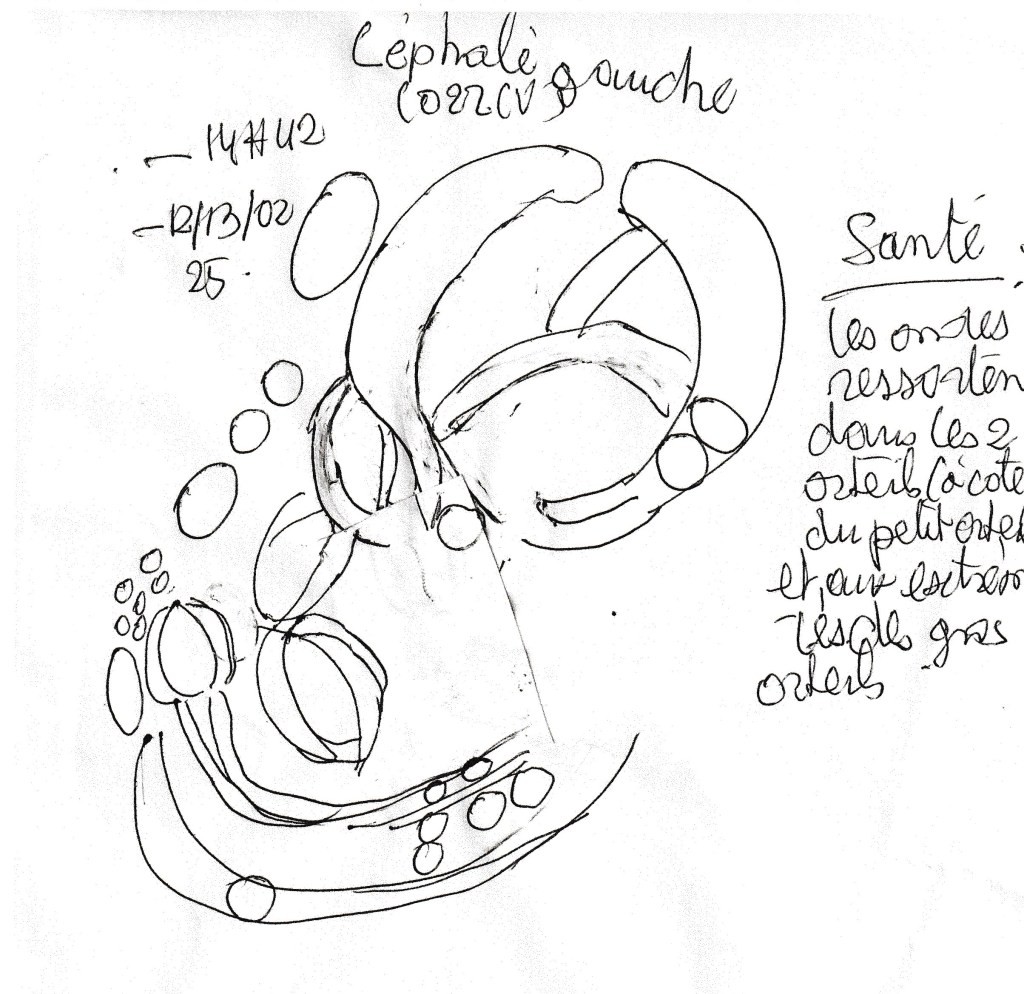 Céphalé gauche
(O22CV)
- 14H42
- 12/13/02
25.
Santé.
les ondes
ressortén
dans les 2
orteils (à coté
du petit orteil
et, aux extrém
ités des gros
orteils